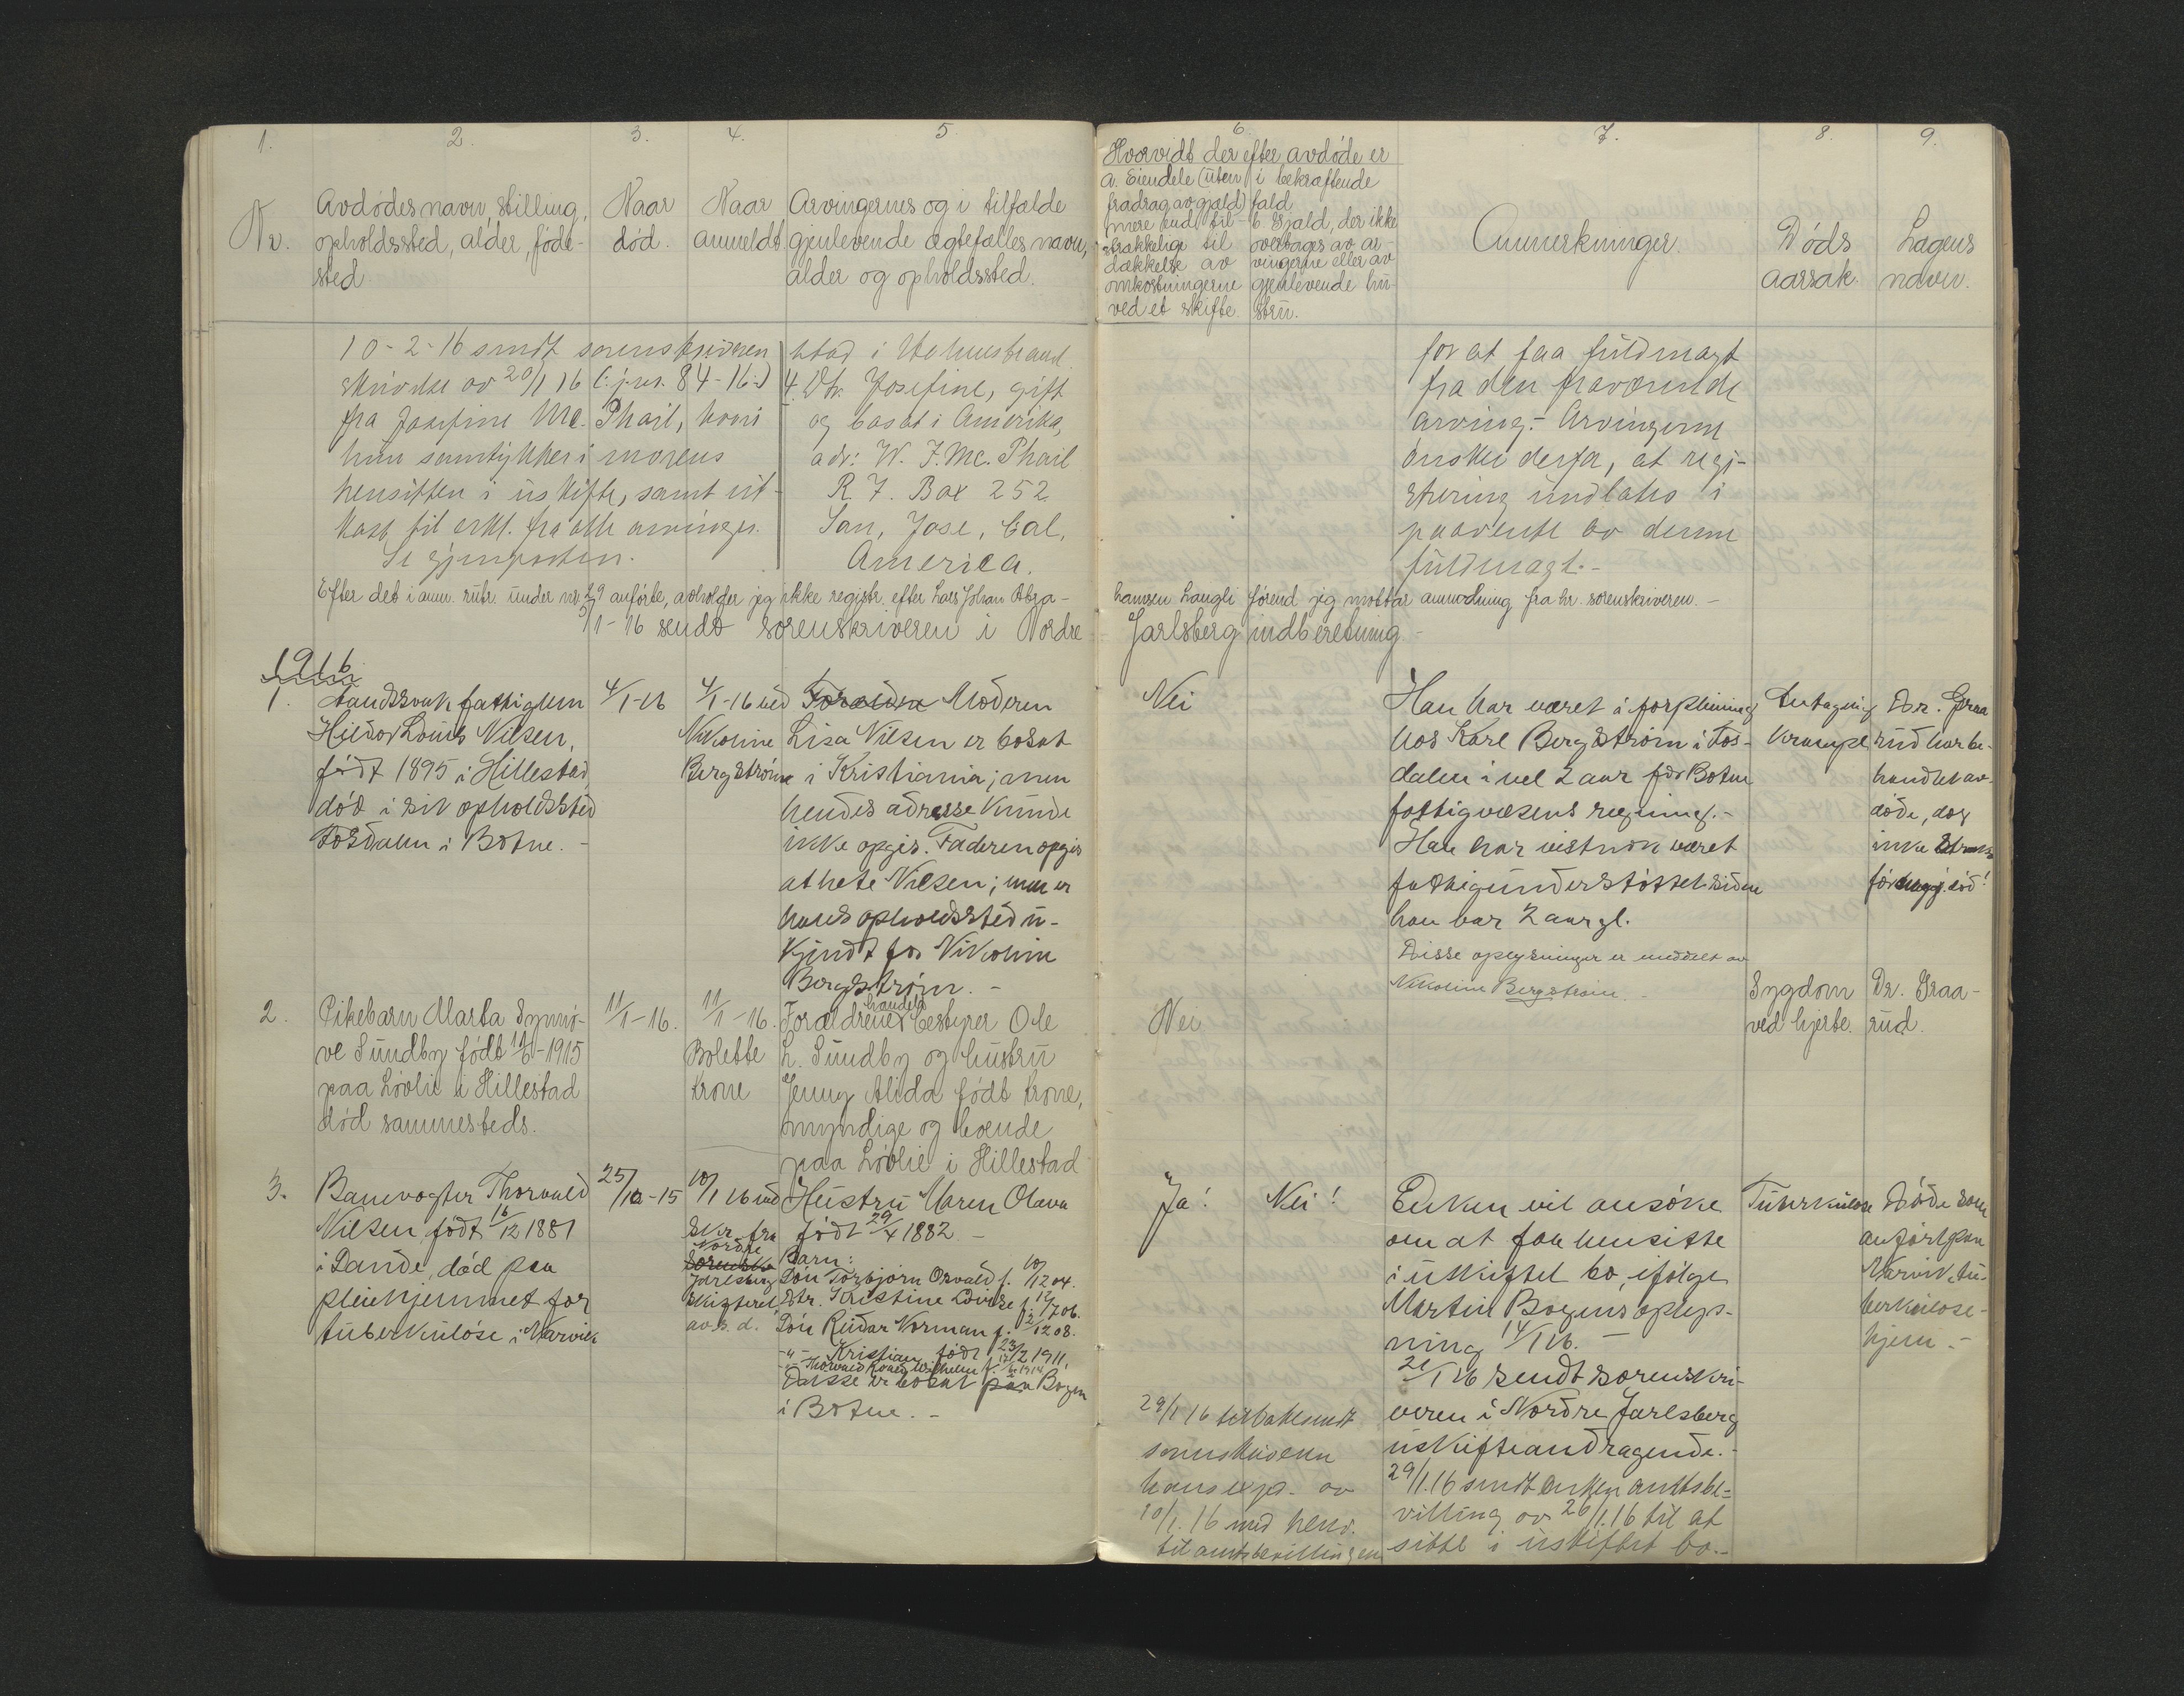 1.
2.
3.
4.
5
Nr.
Avdødes navn, stilling,
opholdssted, alder, føde-
sted.
Naar
død.
Naar
anmeldt
Arvingernes og i tilfælde
gjenlevende ægtefælles navn,
alder og opholdssted.
10-2-16 sendt sorenskriveren
skrivelse av 20/1 16 (: j.nr. 84-16:)
fra Josefine Mc. Phail, hvori
hun samtykker i morens
hensitten i uskifte, samt ut-
kast til erkl. fra alle arvinger.
Se gjenparten.
stad i Holmestrand
4. Dtr. Josefine, gift
og bosat i Amerika,
adr: W. F. Mc. Phail
R. F. Box 252
San, Jose, Cal,
America.
Efter det i anm. rubr. under nr. 29 anførte, avholder jeg ikke registr. efter Lars Johan Abra-
5/1-16 sendt sorenskriveren i Nordre
1916
1.
Aandssvak fattiglem
Hildor Louis Nilsen,
født 1895 i Hillestad,
død i sit opholdssted
Fosdalen i Botne. -
4/1-16
4/1-16 ved
Nikoline
Bergstrøm
Forældre Moderen
Lisa Nilsen er bosat
i Kristiania; men
hendes adresse kunde
ikke opgis. Faderen opgis
at hete Nilsen; men er
hans opholdssted u-
kjendt for Nikoline
Bergstrøm. -
2.
Pikebarn Marta Synnø-
ve Sundby født 1915
paa Løvlie i Hillestad
død sammesteds.
11/1-16.
11/1-16.
Bolette
Krone
Forældrene handels
bestyrer Ole
L. Sundby og hustru
Jenny Alida født Krone,
myndige og boende
paa Løvlie i Hillestad
3.
Banevogter Thorvald
Nilsen, født 16/12 1881
i Sande, død paa
pleiehjemmet for
tuberkuløse i Narvik
25/12-15
10/1 16 ved
Skr. fra
Nordre
Sorenskr
Jarlsberg
skifteret
av s. d.
Hustru Maren Olava
født 29/4 1882 -
Barn:
Søn Torbjørn Orvald f. 10/12 04.
Dtr. Kristine Lovise f. 12/7 06.
Søn Reidar Norman f. 2/12 08.
-"- Kristian født 23/2 1911,
Disse er bosat paa Bogen
i Botne. -
6.
7.
8.
9.
Hvorvidt der efter avdøde er
a. Eiendele (uten
fradrag av gjæld)
mere end til-
strækkelige til
dækkelse av
omkostningerne
ved et skifte.
i bekræftende
fald
b. Gjæld, der ikke
overtages av ar-
vingerne eller av
gjenlevende hu-
stru.
Anmerkninger.
Døds
aarsak.
Lægens
navn.
for at faa fuldmagt
fra den fraværende
arving.- Arvingerne
ønsker derfor, at regi-
strering undlates i
paavente av denne
fuldmagt.-
hamsen Langli førend jeg mottar anmodning fra hr. sorenskriveren. -
Jarlsberg indberetning -
Nei
Han har været i forpleining
hos Karl Bergstrøm i Fos-
dalen i vel 2 aar for Botne
fattigvæsens regning. -
Han har vistnok været
fattigunderstøttet siden
han var 2 aar gl.
Disse oplysninger er meddelt av
Nikoline Bergstrøm. -
Antagelig
krampe
Dr. Graa
rud har be-
handlet av-
døde, dog
ikke straks
før død!
Nei
Sygdom
ved hjerte.
Dr. Graa-
rud.
Ja!
Nei!
Enken vil ansøke
om at faa hensitte
i uskiftet bo, ifølge
Martin Bogens oplys-
ning 14/1 16. -
21/1 16 sendt sorenskri-
veren i Nordre Jarlsberg
uskifteandragende. -
29/1.16 sendt enken amtsbe-
villing av 26/1.16 til at
sitte i uskiftet bo.-
Tuberkulose
Døde som
anført paa
Narvik tu-
berkulose-
hjem. -
29/1 16 tilbakesendt
sorenskriveren
hans exp. av
10/1. 16 med henv.
til amtsbevillingen